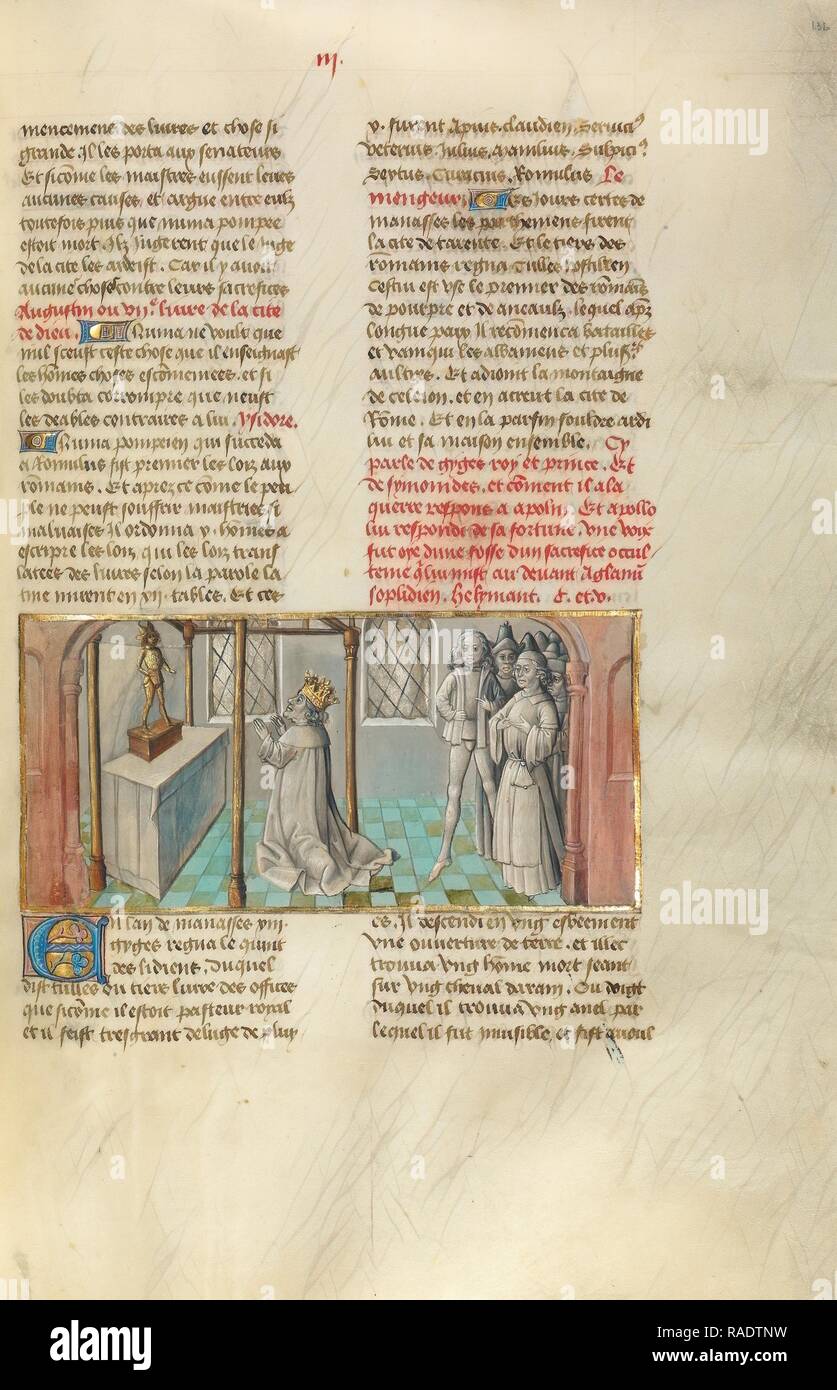 iij.
mencement des livres et chose si
grande Il les porta aux senateurs
Et sicome les maistres eussent leues
aucunes causes, et argue entre eulx
toutesfois puis que numa pompee
estoit mort Ilz Jugerent que le Juge
de la cite les ardist. Car il y avoit
aucune chose contre leurs sacrefices
Augustin ou vij.e livre de la cite
de dieu. Numa ne voult que
nul sceust ceste chose que il enseignast
les homes choses escomenees. et si
les doubta corrompre que neust
les deables contraires a lui. Ysidore.
Numa pompeien qui succeda
a Romulus fist premier les loix aux
romains. Et aprez ce come le peu
ple ne peust souffrir maistries si
malvaises Il ordonna v. homes a
escripre les loix, qui les loix trans
latees des livres selon la parole la
tine mirent en xij. tables. Et ces
v. furent Apius. claudien, Servici9
veterius Julius. Manilius. Sulpici9
Sextus. Curacius. Romulus Le
mengeur. Es Jours certes de
manasses les parthemens firent
la cite de tarente. Et le tiers des
romains regna Tulles hostilien
Cestui est vse le premier des romais
de pourpre et de aneaulx. lequel aprz
longue paix Il recomenca batailles
et vainqui les albaniens et plusrs
aultres. Et adiont la montaigne
de celeion. et en acreut la cite de
Rome. Et en la parfin fouldre ardi
lui et sa maison ensemble. Cy
parle de gyges roy et prince. Et
de symonides. et coment il ala
querre respons a apolin. Et apollo
lui respondi de sa fortune. vne voix
fut oye dune fosse dun sacrefice occul
tement q lui mist au devant Aglanu
soplidien. Helymant. C. et. v.
En lan de manasses viij.
gyges regna le quint
des lidiens. Duquel
dist tulles ou tiers livre des offices
que sicome il estoit pasteur royal
et il feist tresgrant deluge de pluy
es. Il descendi en vng esveement
vne ouverture de terre. et illec
trouva vng home mort seant
sur vng cheval darain. Ou doigt
duquel il trouva vng anel par
lequel il fut invisible, et fist avoul
alamy
Image ID: RADTNW
www.alamy.com